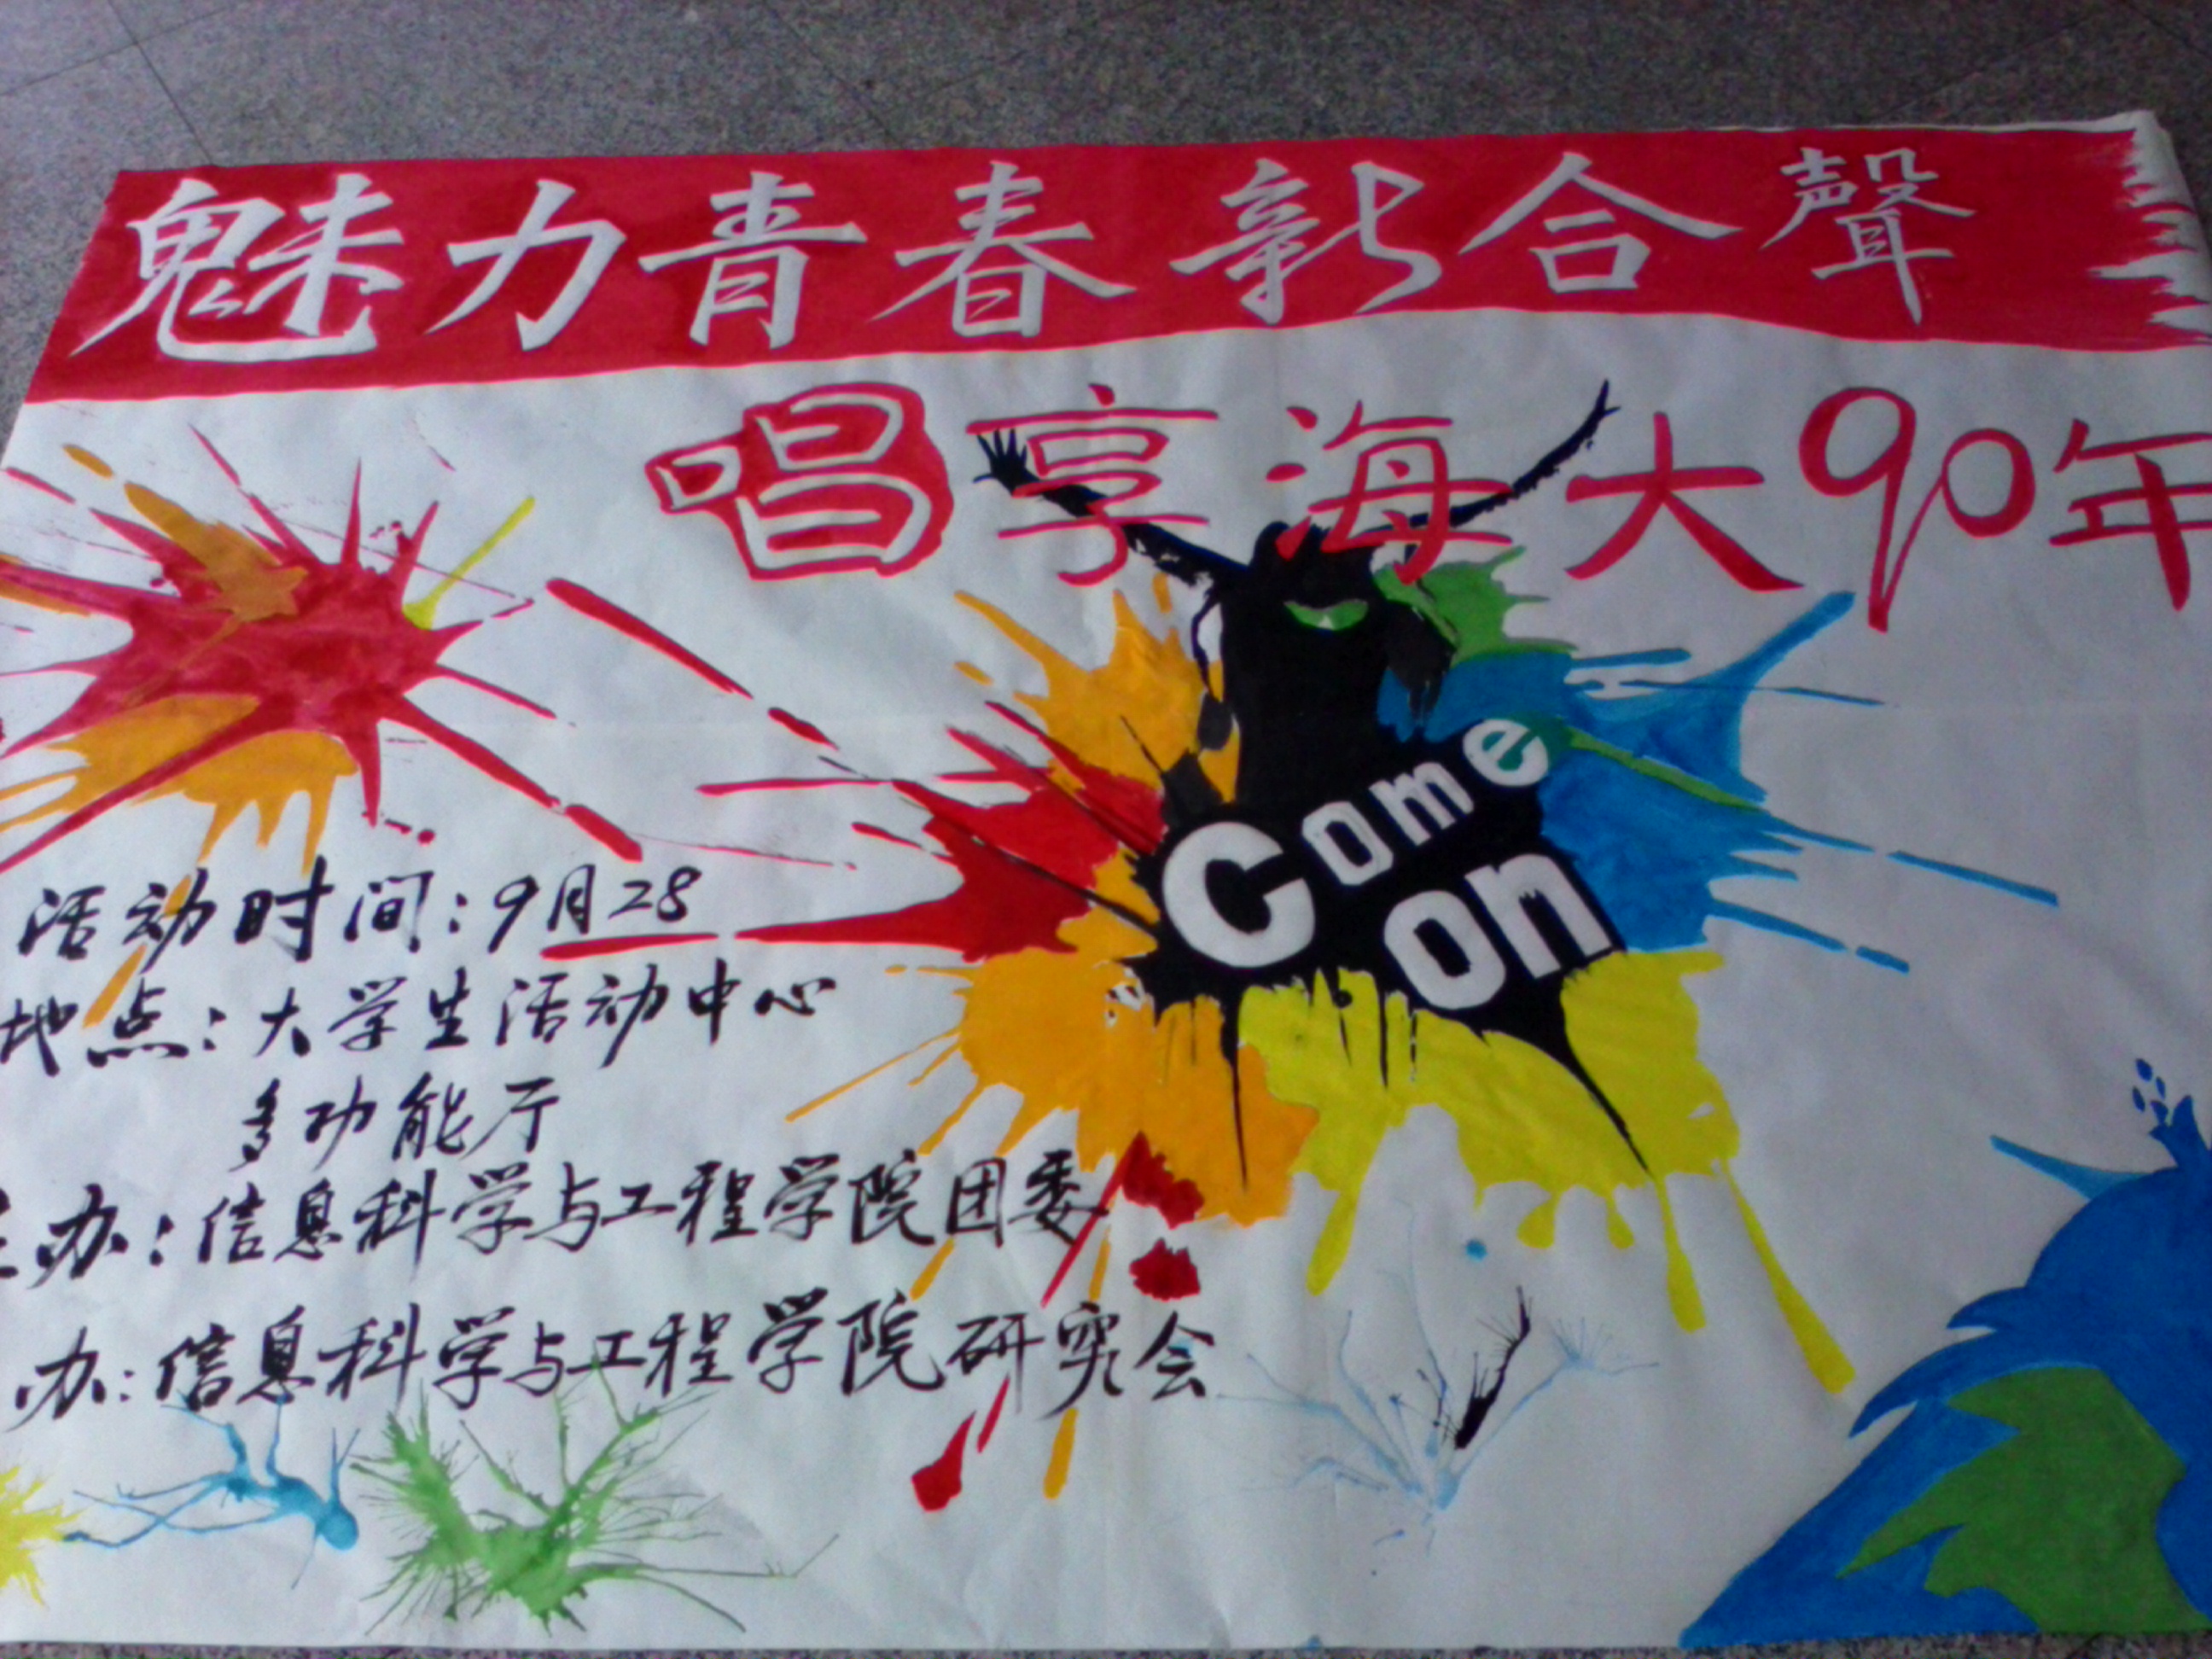 魅力青春新合聲
唱享海大90年
Come
on
活动时间:9月28
地点:大学生活动中心
多功能厅
主办:信息科学与工程学院团委
办:信息科学与工程学院研究会